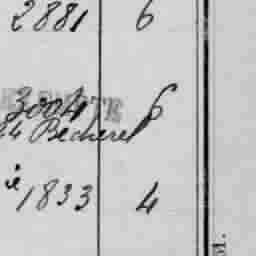 2881 6
3004 6
24 Becherel
1833 4